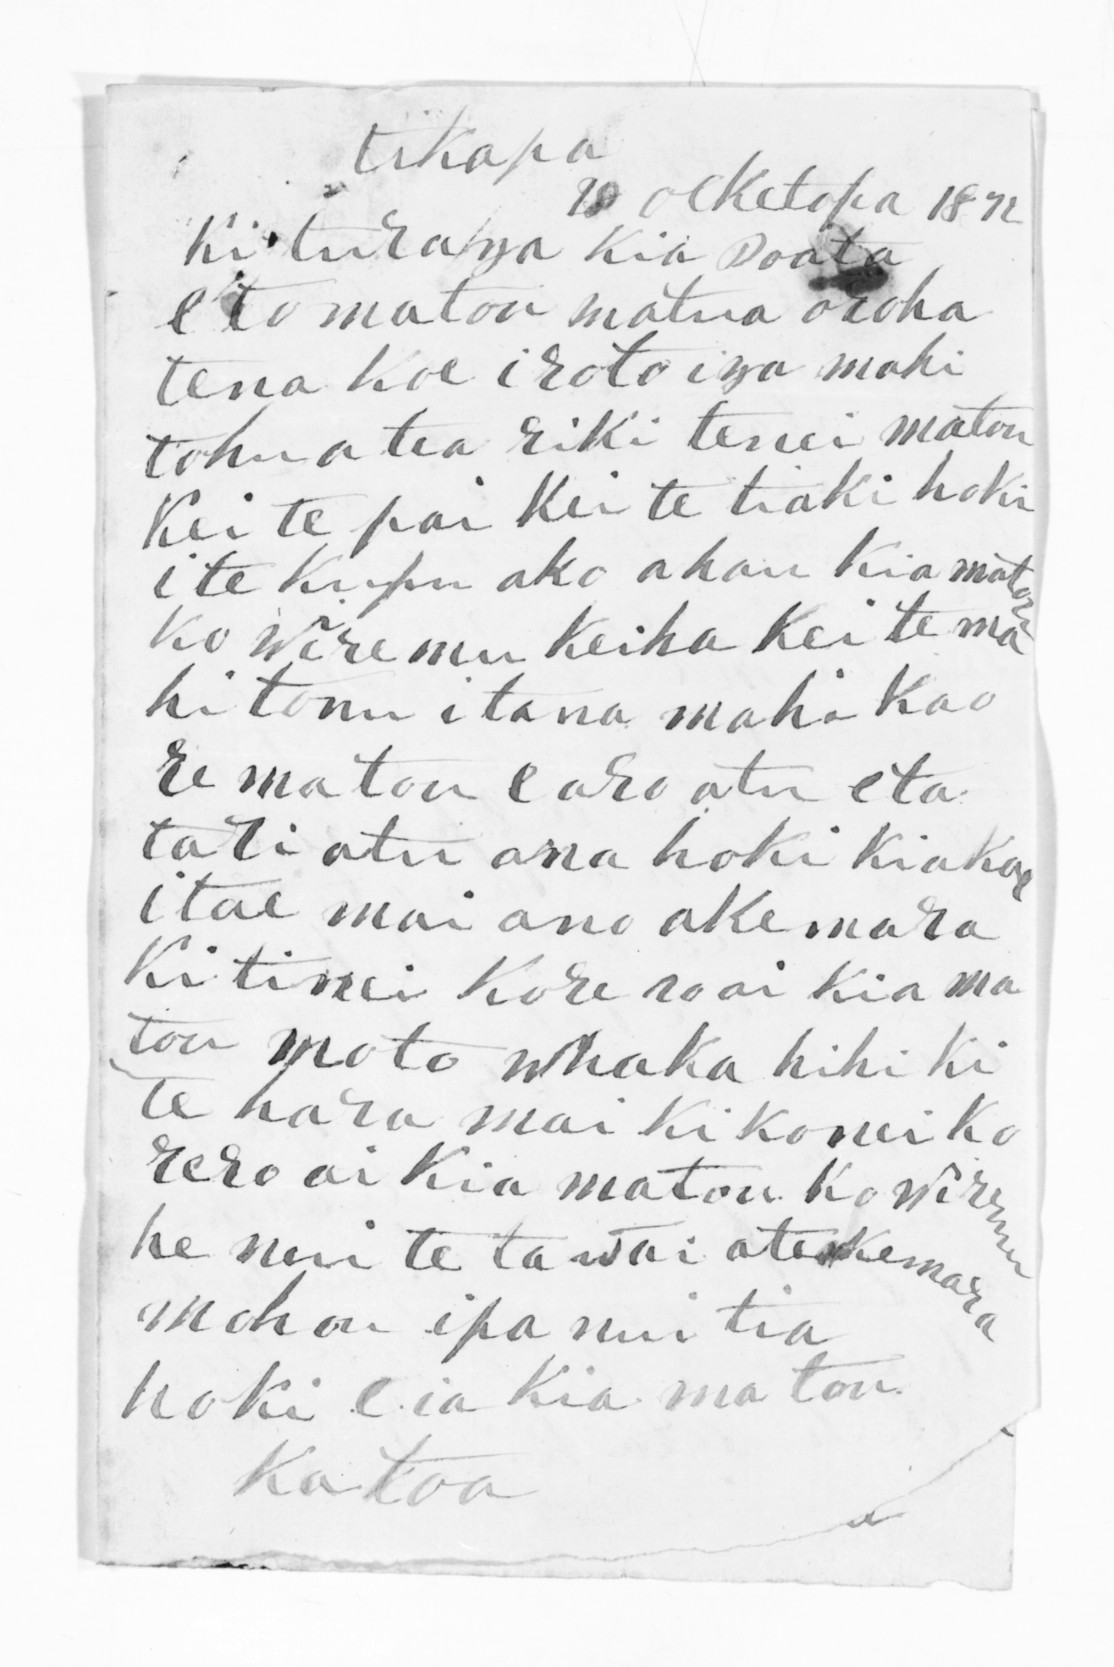 tikapa
oketopa 18
Ki turanga kia
e to matou matua aroha
tena koe i roto i nga mahi
tohu a tea riki tenei matou
kei te pai kei te tiaki hoki
i te kupu ako ahau kia matou
ko Wiremu keiha kei te ma
hi tonu i tana mahi kao
re matou e aro atu e ta
tari atu ana hoki kia koe
i tae mai ano akemara
ki tinei kore ro ai kia ma
tou moto whaka hihi ki
te hara mai ki konei ko
rero ai kia matou ko Wiremu
he nui te ta wai a te akemara
mohou i pa nui tia
hoki e ia kia ma tou
Ka toa